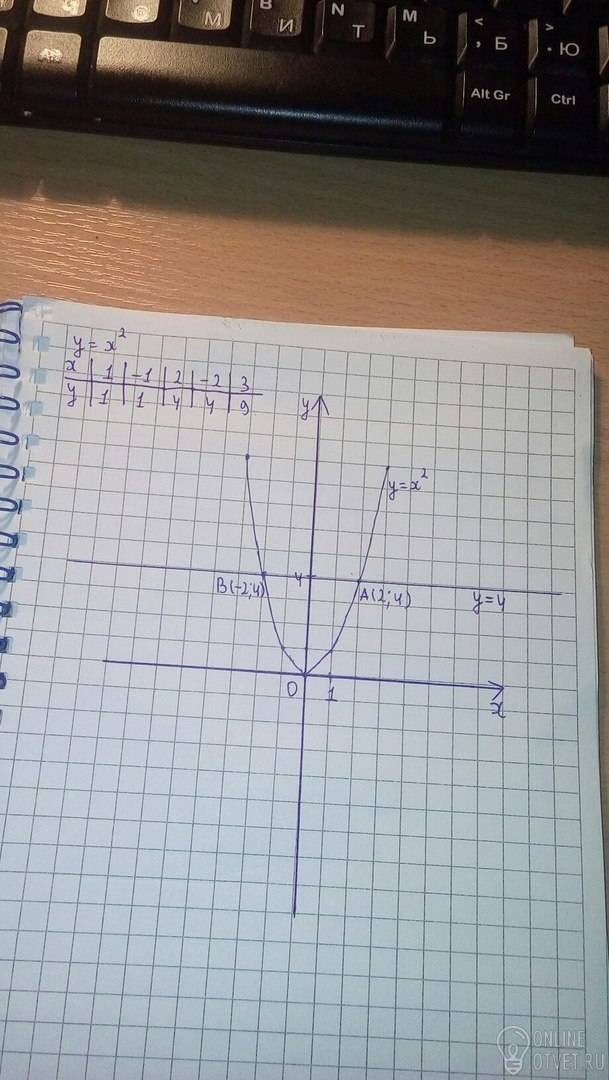 N M
М И Т Ь < , Б > . Ю
Alt Gr Ctrl
y = x²
x | 1 | -1 | 2 | -2 | 3
y | 1 | 1 | 4 | 4 | 9
y
y = x²
4
B(-2;4)
A(2;4)
y = 4
0 1
x
ONLINE
OTVET.RU